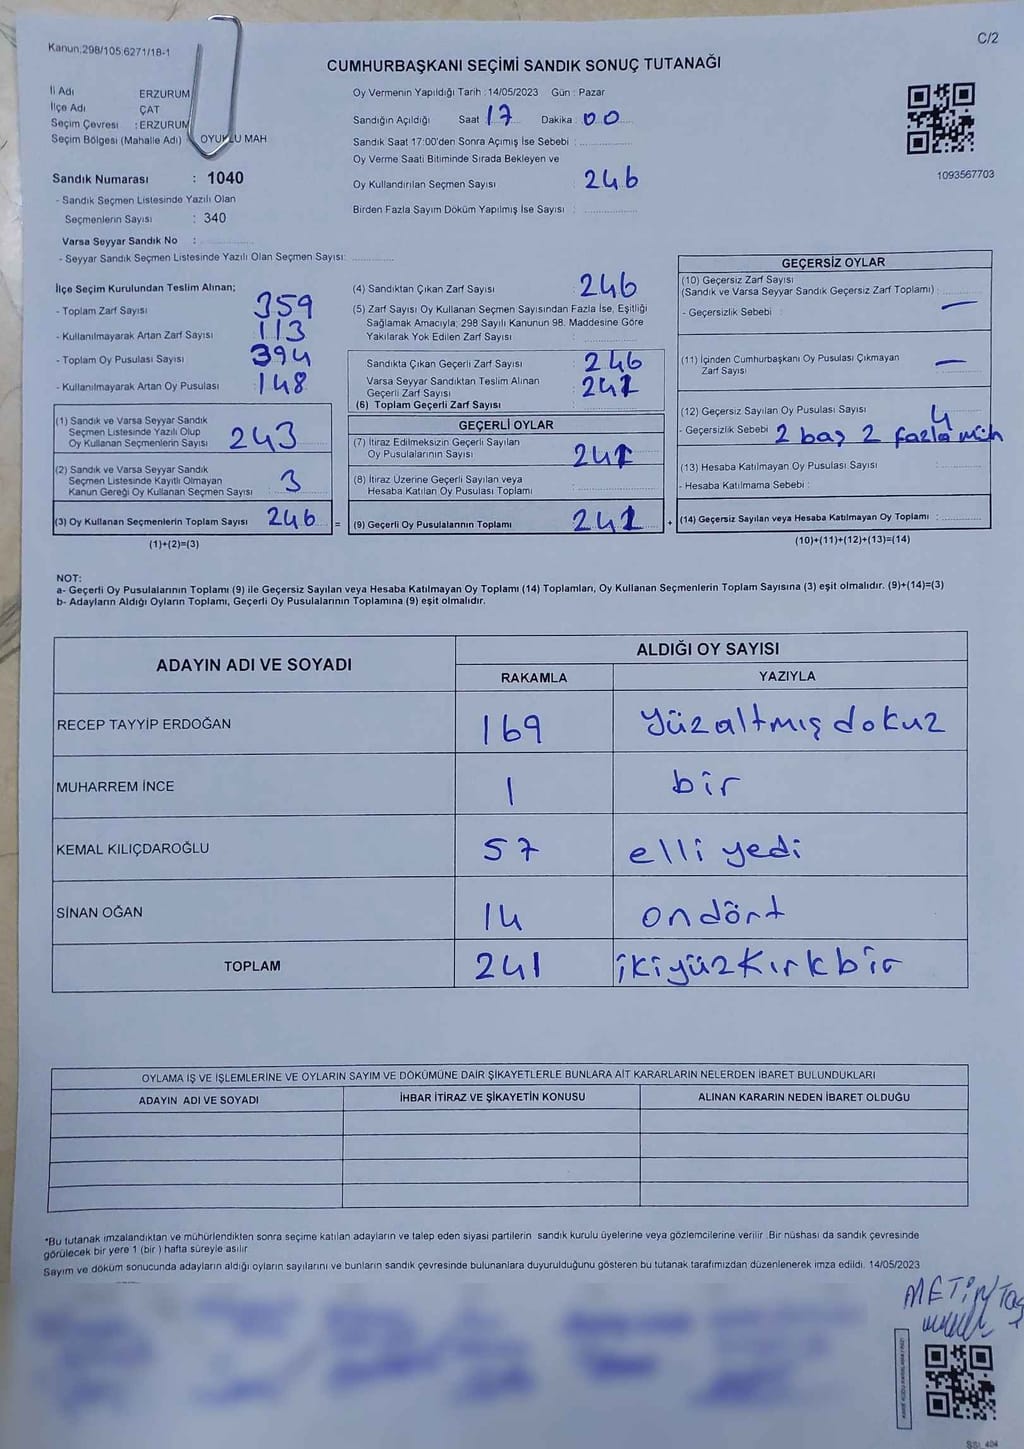 Kanun:298/105.6271/18-1
C/2
CUMHURBAŞKANI SEÇİMİ SANDIK SONUÇ TUTANAĞI
İl Adı ERZURUM
İlçe Adı ÇAT
Seçim Çevresi : ERZURUM
Seçim Bölgesi (Mahalle Adı) OYUKLU MAH
Sandık Numarası : 1040
- Sandık Seçmen Listesinde Yazılı Olan
Seçmenlerin Sayısı : 340
Varsa Seyyar Sandık No :
- Seyyar Sandık Seçmen Listesinde Yazılı Olan Seçmen Sayısı:
Oy Vermenin Yapıldığı Tarih : 14/05/2023 Gün : Pazar
Sandığın Açıldığı Saat 17 Dakika : 00
Sandık Saat 17:00'den Sonra Açımış İse Sebebi :
Oy Verme Saati Bitiminde Sırada Bekleyen ve
Oy Kullandırılan Seçmen Sayısı : 246
Birden Fazla Sayım Döküm Yapılmış İse Sayısı :
1093567703
İlçe Seçim Kurulundan Teslim Alınan;
- Toplam Zarf Sayısı : 359
- Kullanılmayarak Artan Zarf Sayısı : 113
- Toplam Oy Pusulası Sayısı : 394
- Kullanılmayarak Artan Oy Pusulası : 148
(1) Sandık ve Varsa Seyyar Sandık
Seçmen Listesinde Yazılı Olup
Oy Kullanan Seçmenlerin Sayısı : 243
(2) Sandık ve Varsa Seyyar Sandık
Seçmen Listesinde Kayıtlı Olmayan
Kanun Gereği Oy Kullanan Seçmen Sayısı : 3
(3) Oy Kullanan Seçmenlerin Toplam Sayısı 246 =
(1)+(2)=(3)
(4) Sandıktan Çıkan Zarf Sayısı : 246
(5) Zarf Sayısı Oy Kullanan Seçmen Sayısından Fazla İse, Eşitliği
Sağlamak Amacıyla; 298 Sayılı Kanunun 98. Maddesine Göre
Yakılarak Yok Edilen Zarf Sayısı :
Sandıkta Çıkan Geçerli Zarf Sayısı : 246
Varsa Seyyar Sandıktan Teslim Alınan
Geçerli Zarf Sayısı : 241
(6) Toplam Geçerli Zarf Sayısı :
GEÇERLİ OYLAR
(7) İtiraz Edilmeksizin Geçerli Sayılan
Oy Pusulalarının Sayısı : 241
(8) İtiraz Üzerine Geçerli Sayılan veya
Hesaba Katılan Oy Pusulası Toplamı :
(9) Geçerli Oy Pusulalarının Toplamı : 241 +
GEÇERSİZ OYLAR
(10) Geçersiz Zarf Sayısı
(Sandık ve Varsa Seyyar Sandık Geçersiz Zarf Toplamı) :
- Geçersizlik Sebebi : —
(11) İçinden Cumhurbaşkanı Oy Pusulası Çıkmayan
Zarf Sayısı : —
(12) Geçersiz Sayılan Oy Pusulası Sayısı : 4
- Geçersizlik Sebebi : 2 baş 2 fazla müh
(13) Hesaba Katılmayan Oy Pusulası Sayısı :
- Hesaba Katılmama Sebebi :
(14) Geçersiz Sayılan veya Hesaba Katılmayan Oy Toplamı :
(10)+(11)+(12)+(13)=(14)
NOT:
a- Geçerli Oy Pusulalarının Toplamı (9) ile Geçersiz Sayılan veya Hesaba Katılmayan Oy Toplamı (14) Toplamları, Oy Kullanan Seçmenlerin Toplam Sayısına (3) eşit olmalıdır. (9)+(14)=(3)
b- Adayların Aldığı Oyların Toplamı, Geçerli Oy Pusulalarının Toplamına (9) eşit olmalıdır.
ADAYIN ADI VE SOYADI ALDIĞI OY SAYISI
RAKAMLA YAZIYLA
RECEP TAYYİP ERDOĞAN 169 yüzaltmışdokuz
MUHARREM İNCE 1 bir
KEMAL KILIÇDAROĞLU 57 elli yedi
SİNAN OĞAN 14 ondört
TOPLAM 241 ikiyüzkırkbir
OYLAMA İŞ VE İŞLEMLERİNE VE OYLARIN SAYIM VE DÖKÜMÜNE DAİR ŞİKAYETLERLE BUNLARA AİT KARARLARIN NELERDEN İBARET BULUNDUKLARI
ADAYIN ADI VE SOYADI İHBAR İTİRAZ VE ŞİKAYETİN KONUSU ALINAN KARARIN NEDEN İBARET OLDUĞU
*Bu tutanak imzalandıktan ve mühürlendikten sonra seçime katılan adayların ve talep eden siyasi partilerin sandık kurulu üyelerine veya gözlemcilerine verilir. Bir nüshası da sandık çevresinde
görülecek bir yere 1 (bir ) hafta süreyle asılır.
Sayım ve döküm sonucunda adayların aldığı oyların sayılarını ve bunların sandık çevresinde bulunanlara duyurulduğunu gösteren bu tutanak tarafımızdan düzenlenerek imza edildi. 14/05/2023
METİN TAŞ
SSI_404